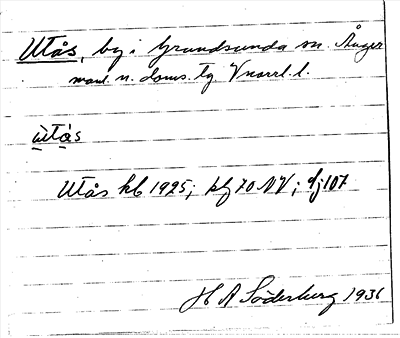 Utås, by i Grundsunda sn. Ånger
manl. n. doms. tg Vnorrl. l.
ùtás
Utås kb 1925; kbf 70 NV; dj 107
H A Söderberg 1936